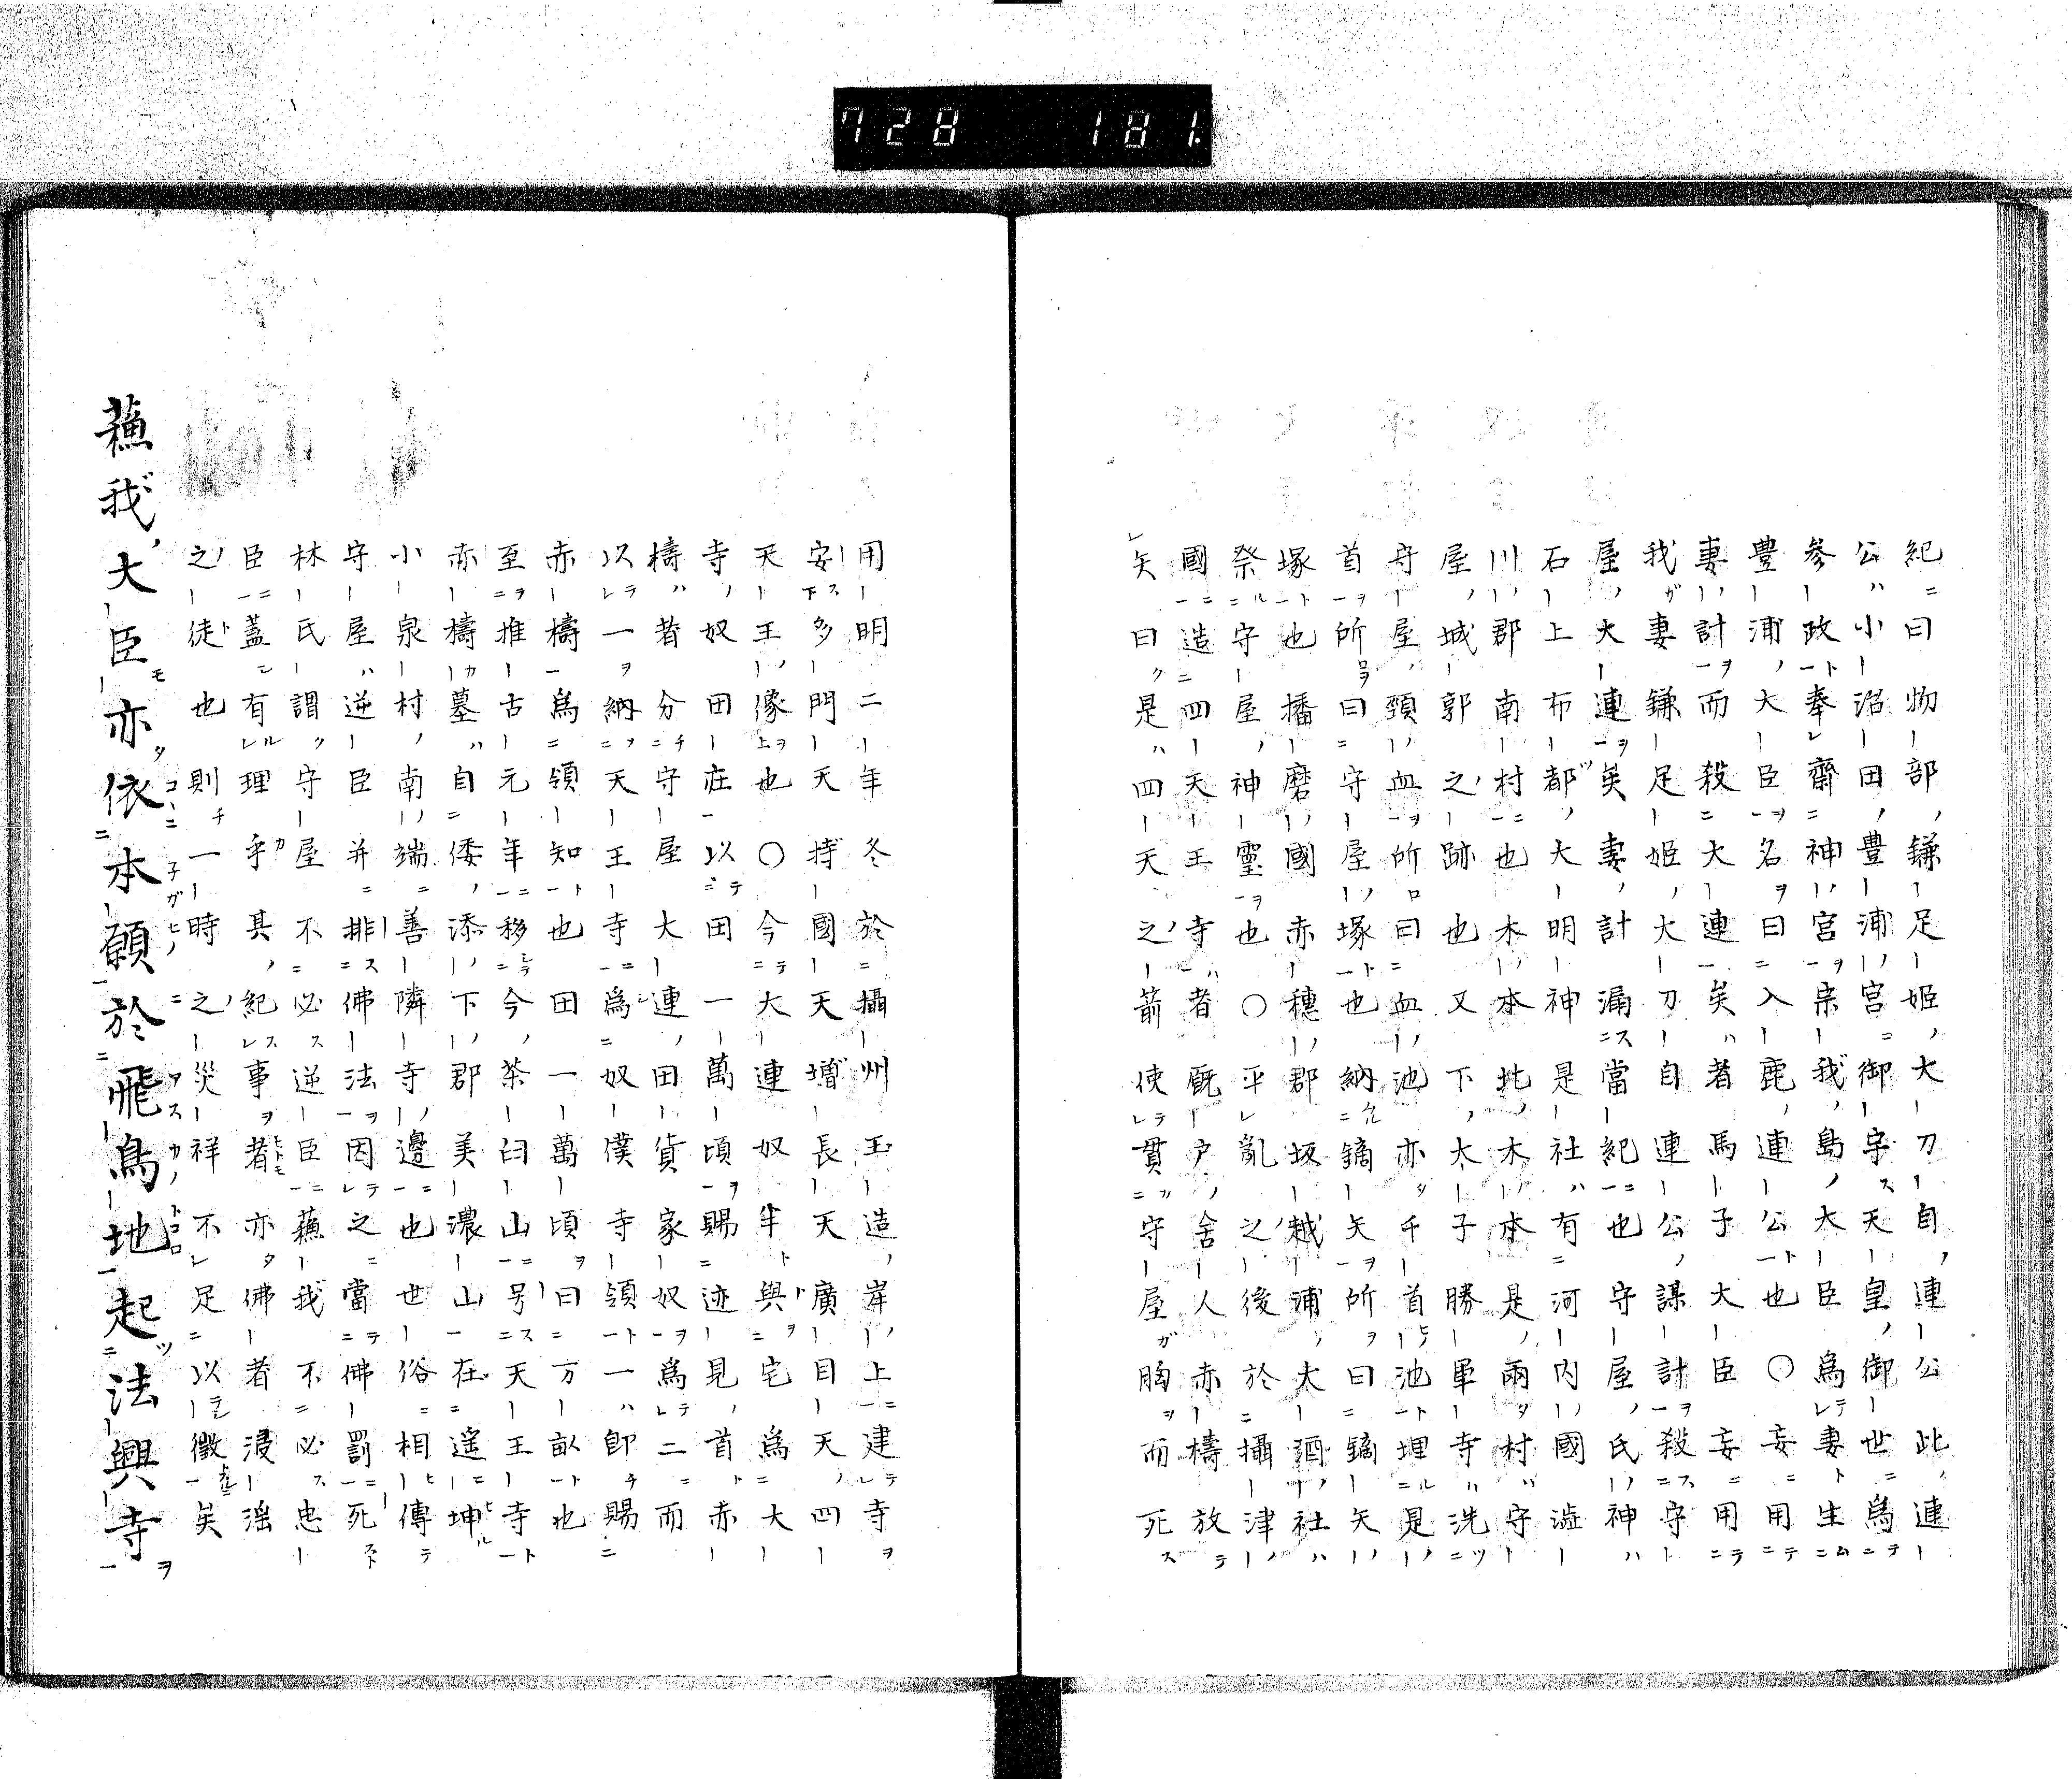 728 181
紀曰物部鎌足姫大刀自連公此連
公小沼田豊浦宮御宇天皇御世爲
參政奉齋神宮宗我島大臣爲妻生
豊浦大臣名曰入鹿連公也〇妄用
妻計而殺大連矣者馬子大臣妄用
我妻鎌足姫大刀自連公謀計殺守
屋大連矣妻計漏當紀也守屋氏神
石上布都大明神是社有河内國澁
川郡南村也木本北木本是兩村守
屋城郭之跡也又下太子勝軍寺洗
守屋頸血所曰血池亦千首池埋是
首所曰守屋塚也納鏑矢所曰鏑矢
塚也播磨國赤穗郡坂越浦大酒社
祭守屋神靈也〇平亂之後於攝津
國造四天王寺者厩戸舍人赤檮放
矢曰是四天之箭使貫守屋胸而死
用明二年冬於攝州玉造岸上建寺
安多門天持國天增長天廣目天四
天王像也〇今大連奴半與宅爲大
寺奴田庄以田一萬頃賜迹見首赤
檮者分守屋大連田貨家奴爲二而
以一納天王寺爲奴僕寺領一卽賜
赤檮爲領知也田一萬頃曰万畝也
至推古元年移今荼臼山号天王寺
赤檮墓自倭添下郡美濃山在遥坤
小泉村南端善隣寺邊也世俗相傳
守屋逆臣并排佛法因之當佛罰死
林氏謂守屋不必逆臣蘓我不必忠
臣蓋有理乎其紀事者亦佛者浸滛
之徒也則一時之災祥不足以徴矣
蘓我大臣亦依本願於飛鳥地起法興寺